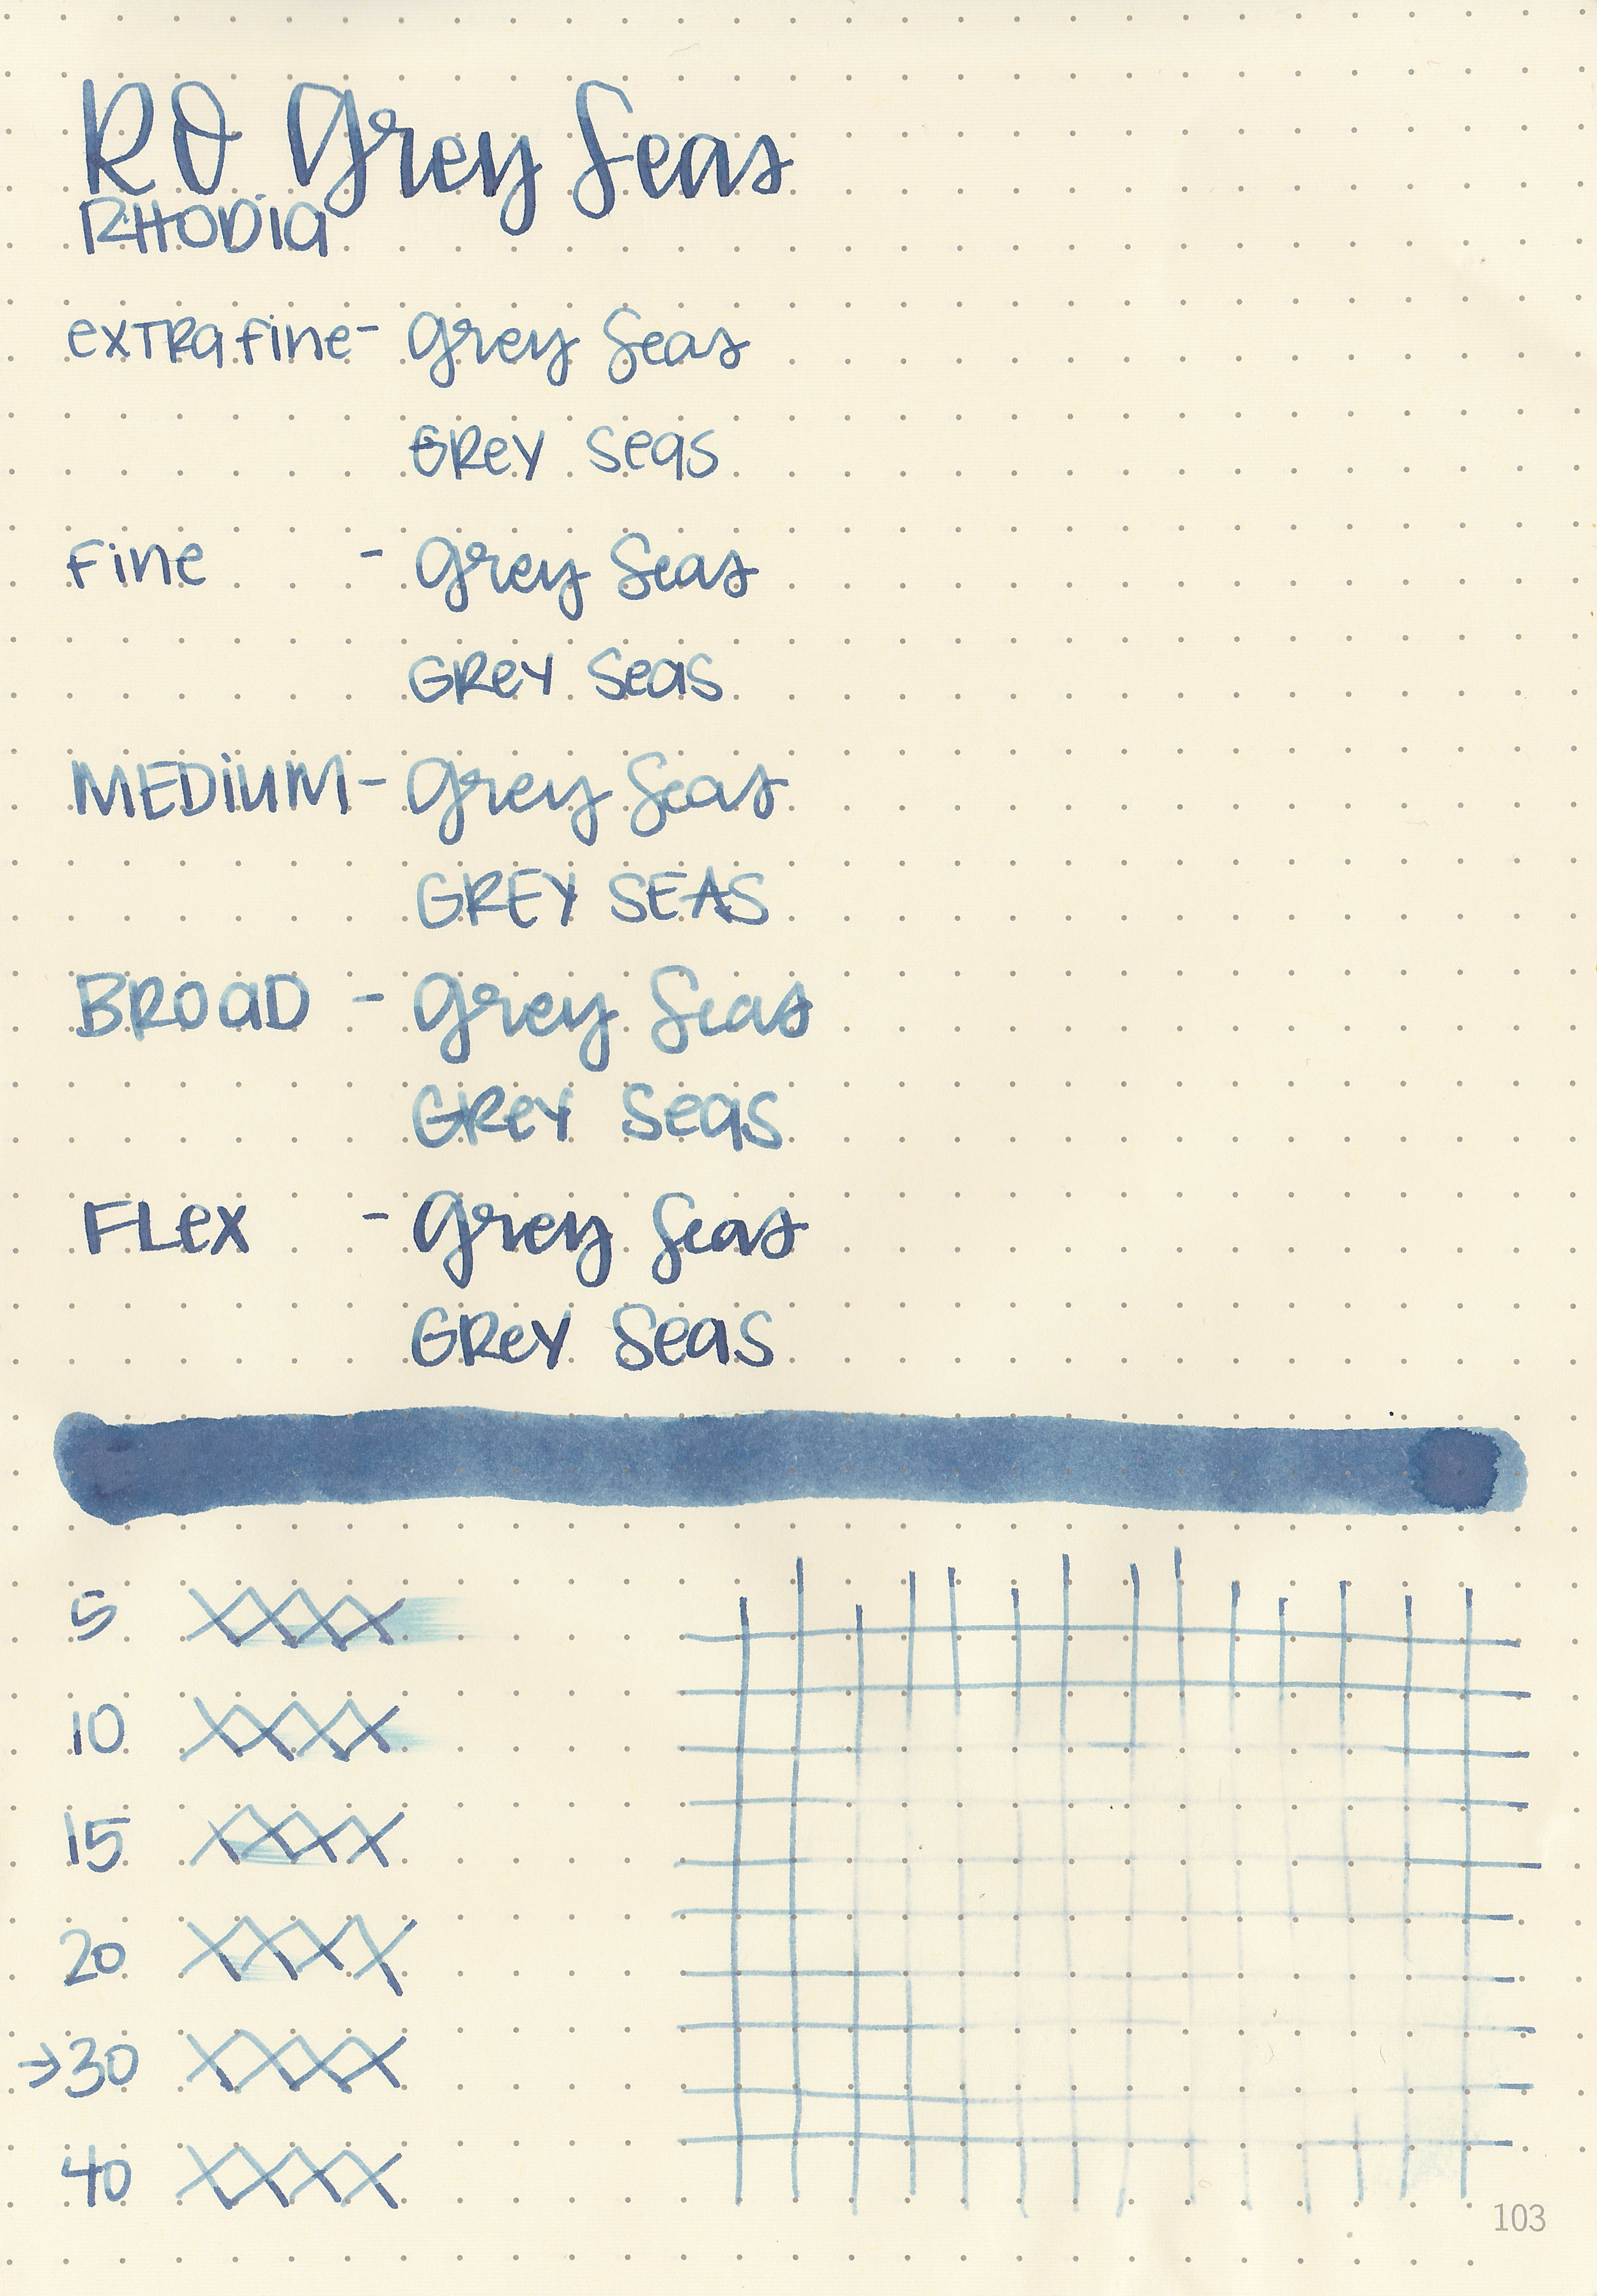 RO Grey Seas
RHODia
exTRa fine - Grey Seas
GRey Seas
Fine - Grey Seas
GRey Seas
MEDiUM - Grey Seas
GREY SEAS
BROaD - Grey Seas
GRey Seas
FLex - Grey Seas
GRey Seas
5
10
15
20
→30
40
103